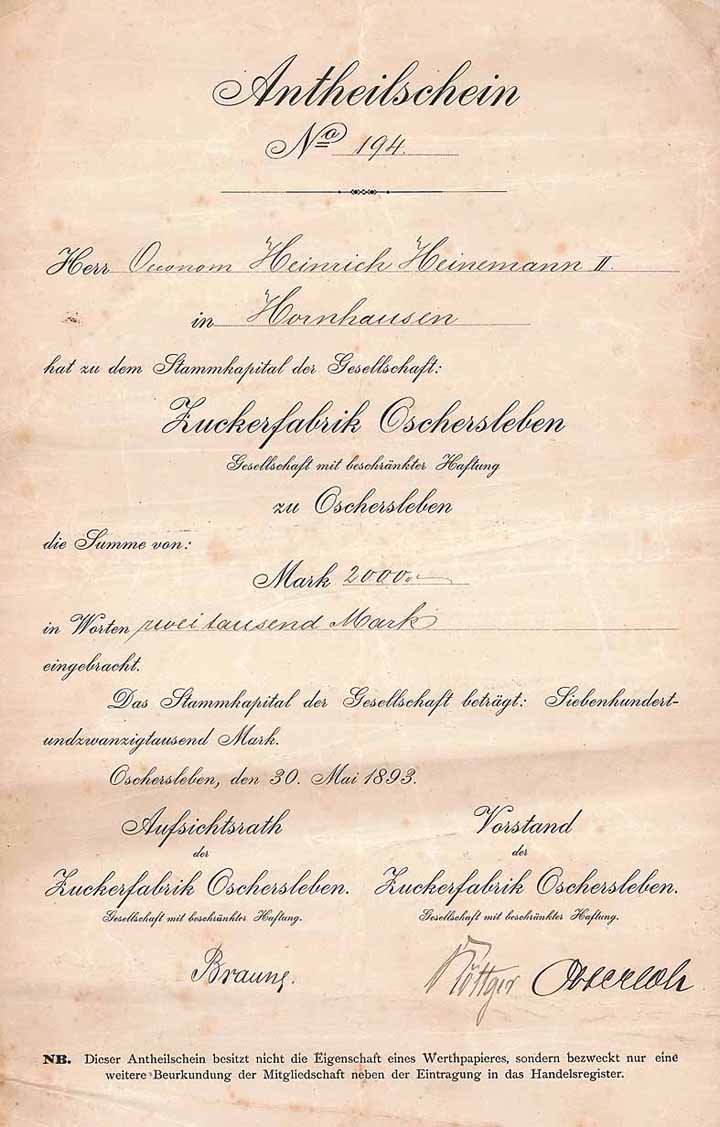 Antheilschein
No 194.
Herr Oeconom Heinrich Heinemann II.
in Hornhausen
hat zu dem Stammkapital der Gesellschaft:
Zuckerfabrik Oschersleben
Gesellschaft mit beschränkter Haftung
zu Oschersleben
die Summe von:
Mark 2000
in Worten zweitausend Mark
eingebracht.
Das Stammkapital der Gesellschaft beträgt: Siebenhundert-
undzwanzigtausend Mark.
Oschersleben, den 30. Mai 1893.
Aufsichtsrath Vorstand
der der
Zuckerfabrik Oschersleben. Zuckerfabrik Oschersleben.
Gesellschaft mit beschränkter Haftung. Gesellschaft mit beschränkter Haftung.
Braune. Böttger
NB. Dieser Antheilschein besitzt nicht die Eigenschaft eines Werthpapieres, sondern bezweckt nur eine
weitere Beurkundung der Mitgliedschaft neben der Eintragung in das Handelsregister.